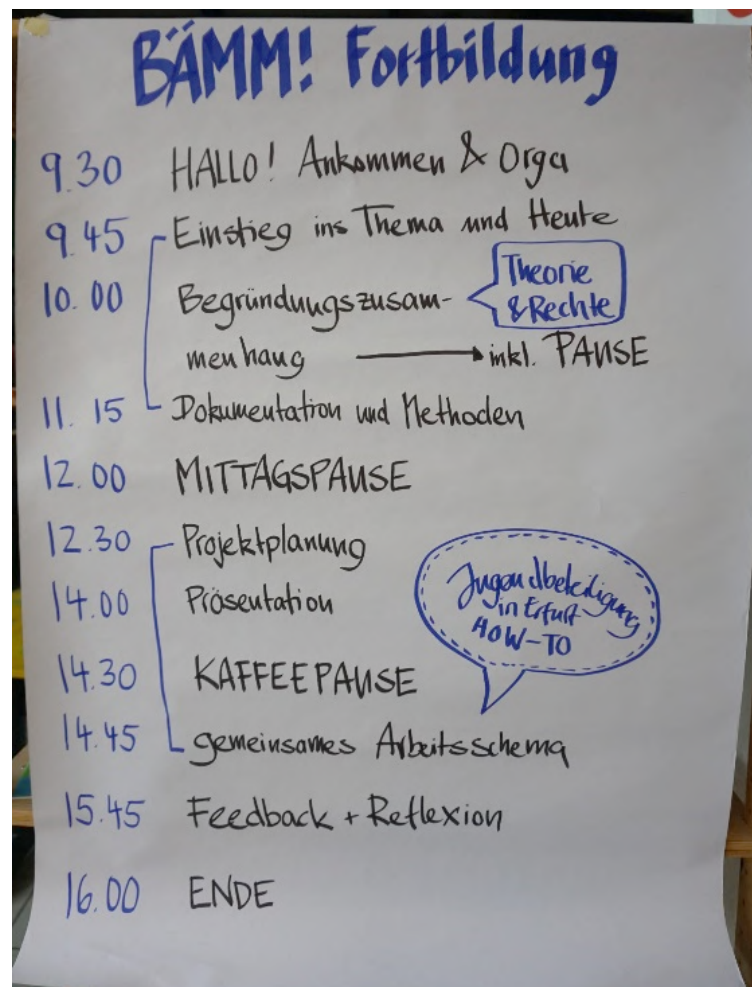 BÄMM! Fortbildung
9.30 HALLO! Ankommen & Orga
9.45 Einstieg ins Thema und Heute
10.00 Begründungszusam-
Theorie
& Rechte
menhang → inkl. PAUSE
11.15 Dokumentation und Methoden
12.00 MITTAGSPAUSE
12.30 Projektplanung
14.00 Präsentation
Jugendbeteiligung
in Erfurt
HOW-TO
14.30 KAFFEEPAUSE
14.45 gemeinsames Arbeitsschema
15.45 Feedback + Reflexion
16.00 ENDE